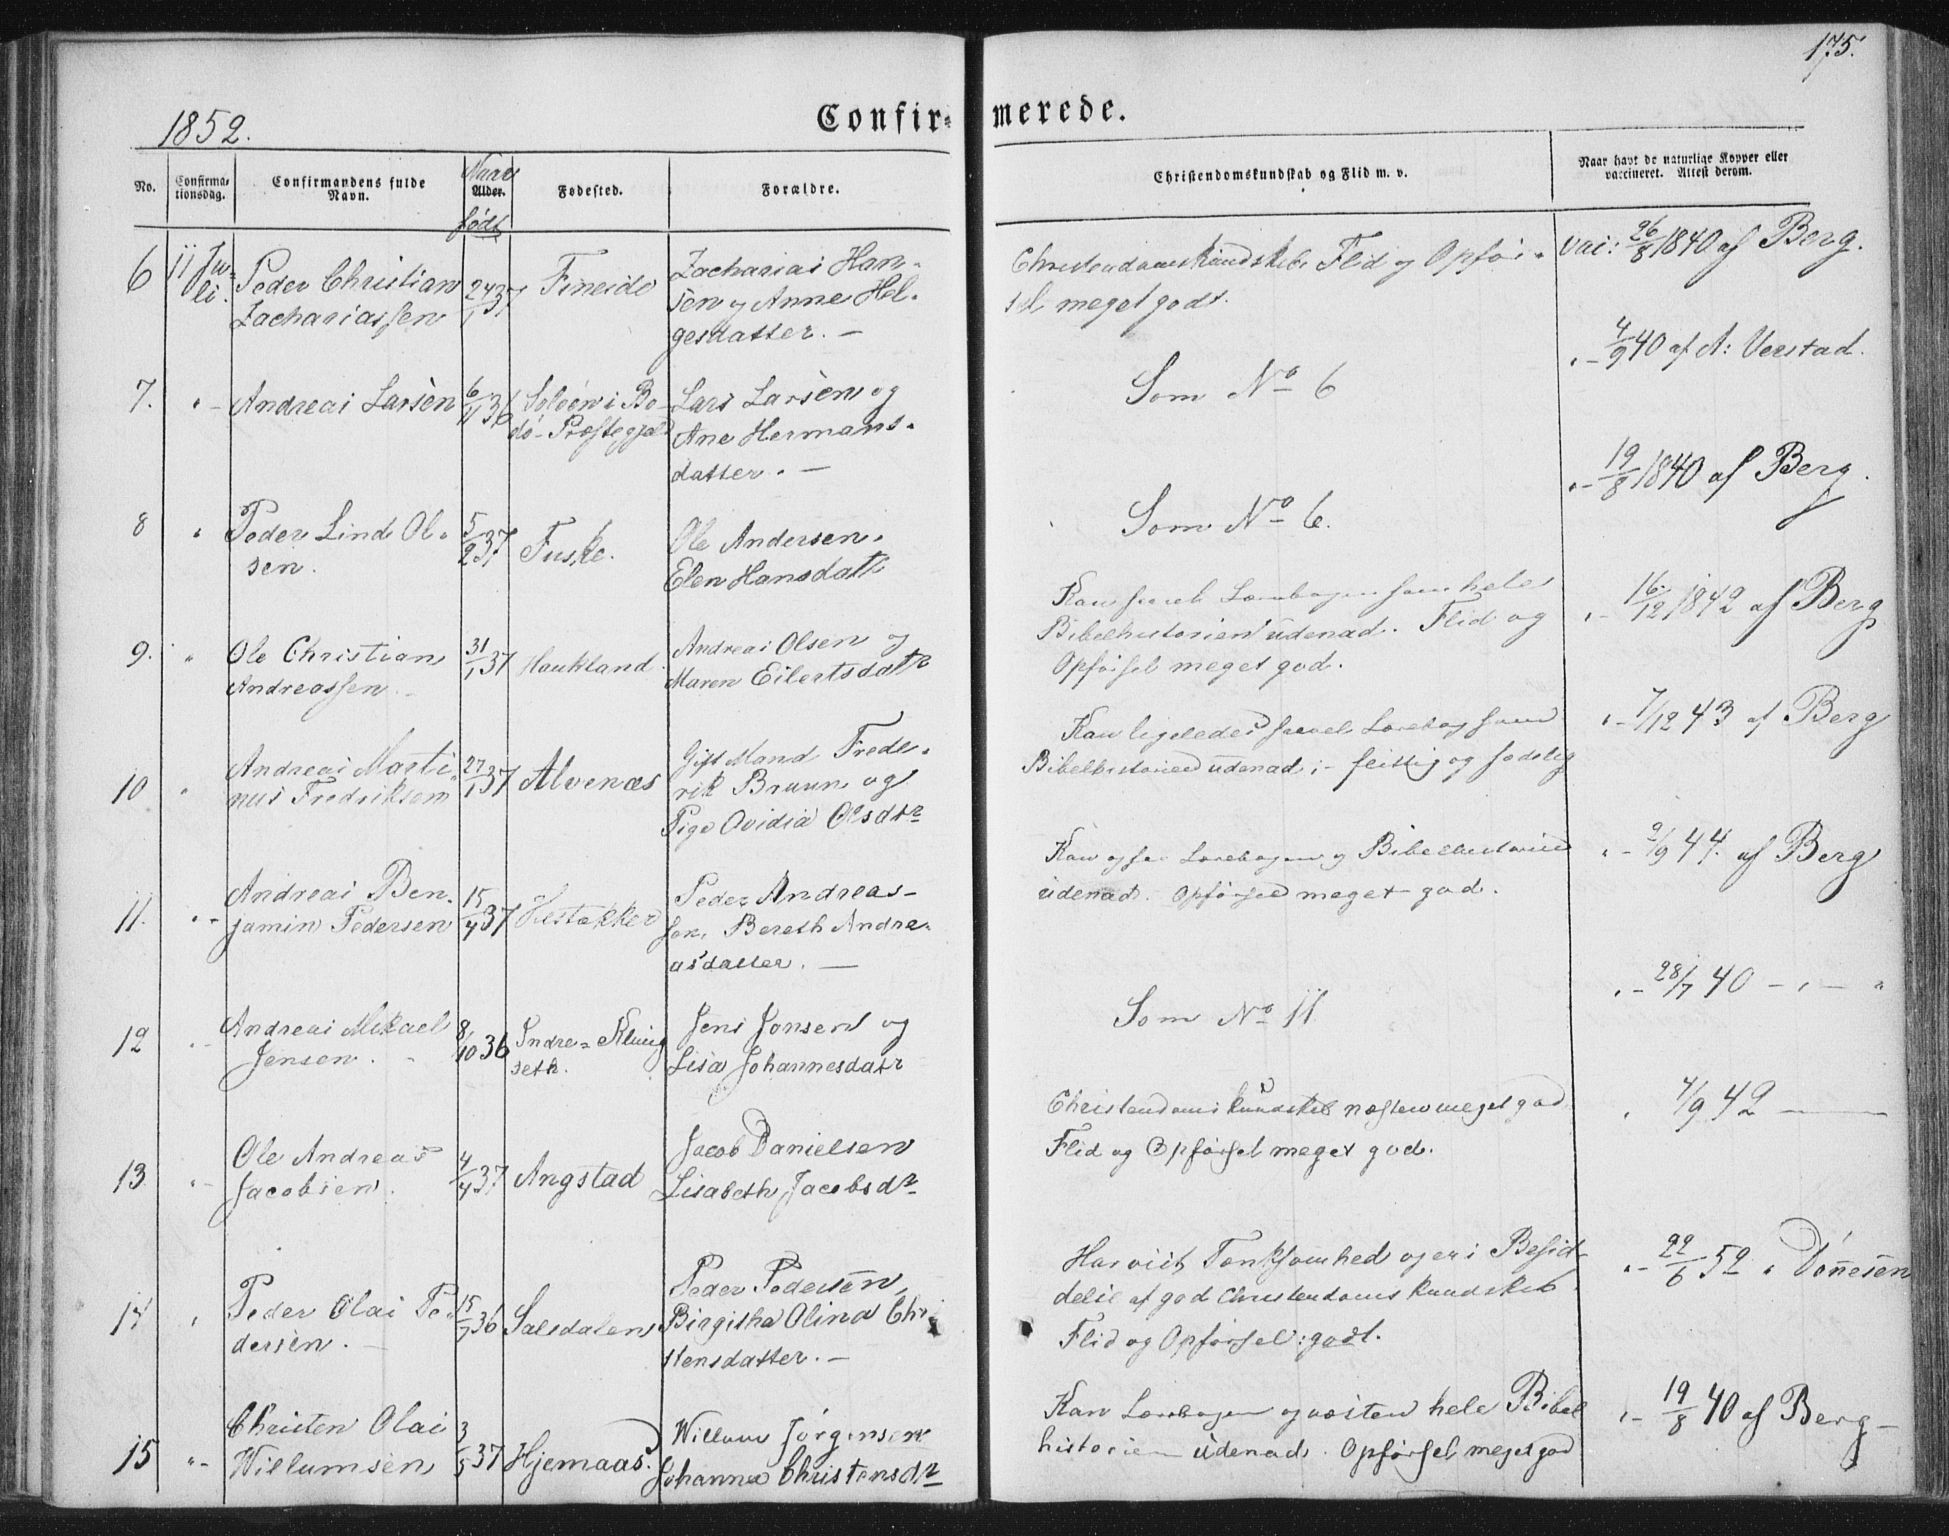 175.
1852.
Confirmerede.
No.
Confirmationsdag.
Confirmandens fulde Navn.
Naar
Alder.
født
Fødested.
Forældre.
Christendomskundskab og Flid m. v.
Naar havt de naturlige Kopper eller vaccineret. Attest derom.
6 11 Ju-
li.
Peder Christian
Zachariassen
24/1 37
Fineide
Zacharias Han-
sen og Anne Hel-
gesdatter. —
Christendomskundskab Flid og Opfør-
sel meget godt.
vac: 26/8 1840 af Berg.
7. " Andreas Larsen
6/11 36
i Bo-
dø Præstegjeld
Lars Larsen og
Ane Hermans-
datter. —
Som No 6
" - 4/9 40 af A: Verstad.
8 " Peder Lind Ol-
sen.
5/2 37
Fuske.
Ole Andersen.
Elen Hansdatr
Som No 6.
" - 19/8 1840 af Berg.
9. " Ole Christian
Andreassen
31/1 37
Haukland.
Andreas Olsen og
Maren Eilertsdatr
Kan saavel Lærebogen som hele
Bibelhistorien udenad. Flid og
Opførsel meget god.
" - 16/12 1842 af Berg
10 " Andreas Marti-
nus Fredriksen
27/1 37
Alvenæs
Gift Mand Frede-
rik Bruun og
Pige Ovidia Olsdtr
Kan ligeledes saavel Lærebog som
Bibelhistorien udenad; - flittig og sædelig
" - 7/12 43 af Berg
11. " - Andreas Ben-
jamin Pedersen
15/4 37
Peder Andreas-
sen, Bereth Andre-
asdatter. —
Kan ogsaa Lærebogen og Bibelhistorien
udenad. Opførsel meget god.
" - 2/9 44. af Berg
12 " - Andreas Mikael
Jensen.
8/10 36
Indre-
seth.
Jens Jonsen og
Lisa Johannesdatr
Som No 11
" - 28/7 40 — " — "
13 " - Ole Andreas
Jacobsen.
4/4 37
Angstad
Jacob Danielsen
Lisabeth Jacobsdr
Christendomskundskab næsten meget god
Flid og Opførsel meget god.
" 4/9 42 ———
14 " Peder Olai Pe-
dersen. —
15/7 36
Salsdalen
Peder Pedersen,
Birgitha Olina Chri-
stensdatter. —
Har viist Tænksomhed og er i Besid-
delse af god Christendomskundskab
Flid og Opførsel: godt.
" - 22/6 52 " Dønnesen
15 " - Christen Olai
Willumsen
3/5 37
Hjemaas.
Willum Jørgensen
Johanna Christensdr
Kan Lærebogen og næsten hele Bibel
historien udenad. Opførsel meget god
" - 19/8 40 af Berg —